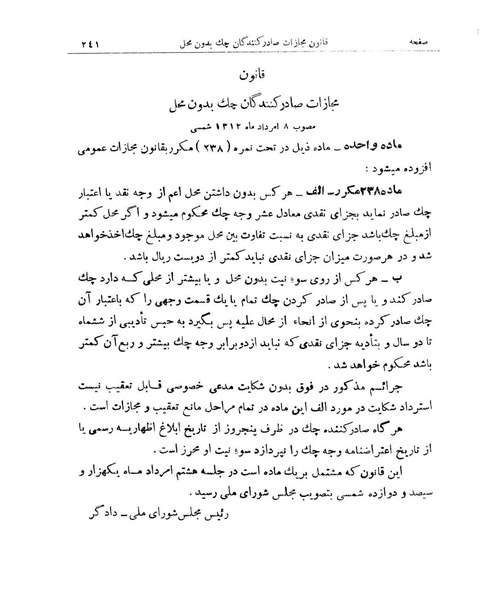 صفحه قانون مجازات صادر کنندگان چك بدون محل ٢٤١
قانون
مجازات صادر کنندگان چك بدون محل
مصوب ٨ امرداد ماه ١٣١٢ شمسی
ماده واحده ــ ماده ذیل در تحت نمره (٢٣٨) مکرر بقانون مجازات عمومی
افزوده میشود :
ماده ٢٣٨ مکرر ــ الف ــ هر کس بدون داشتن محل اعم از وجه نقد یا اعتبار
چك صادر نماید بجزای نقدی معادل عشر وجه چك محکوم میشود و اگر محل کمتر
از مبلغ چك باشد جزای نقدی به نسبت تفاوت بین محل موجود و مبلغ چك اخذ خواهد
شد و در هر صورت میزان جزای نقدی نباید کمتر از دویست ریال باشد .
ب ــ هر کس از روی سوء نیت بدون محل و یا بیشتر از محلی که دارد چك
صادر کند و یا پس از صادر کردن چك تمام یا یك قسمت وجهی را که باعتبار آن
چك صادر کرده بنحوی از انحاء از محال علیه پس بگیرد به حبس تأدیبی از ششماه
تا دو سال و بتأدیه جزای نقدی که نباید از دو برابر وجه چك بیشتر و ربع آن کمتر
باشد محکوم خواهد شد .
جرائم مذکور در فوق بدون شکایت مدعی خصوصی قابل تعقیب نیست
استرداد شکایت در مورد الف این ماده در تمام مراحل مانع تعقیب و مجازات است .
هر گاه صادر کننده چك در ظرف پنجروز از تاریخ ابلاغ اظهاریه رسمی یا
از تاریخ اعتراضنامه وجه چك را نپردازد سوء نیت او محرز است .
این قانون که مشتمل بر یك ماده است در جلسه هشتم امرداد ماه یکهزار و
سیصد و دوازده شمسی بتصویب مجلس شورای ملی رسید .
رئیس مجلس شورای ملی ــ دادگر